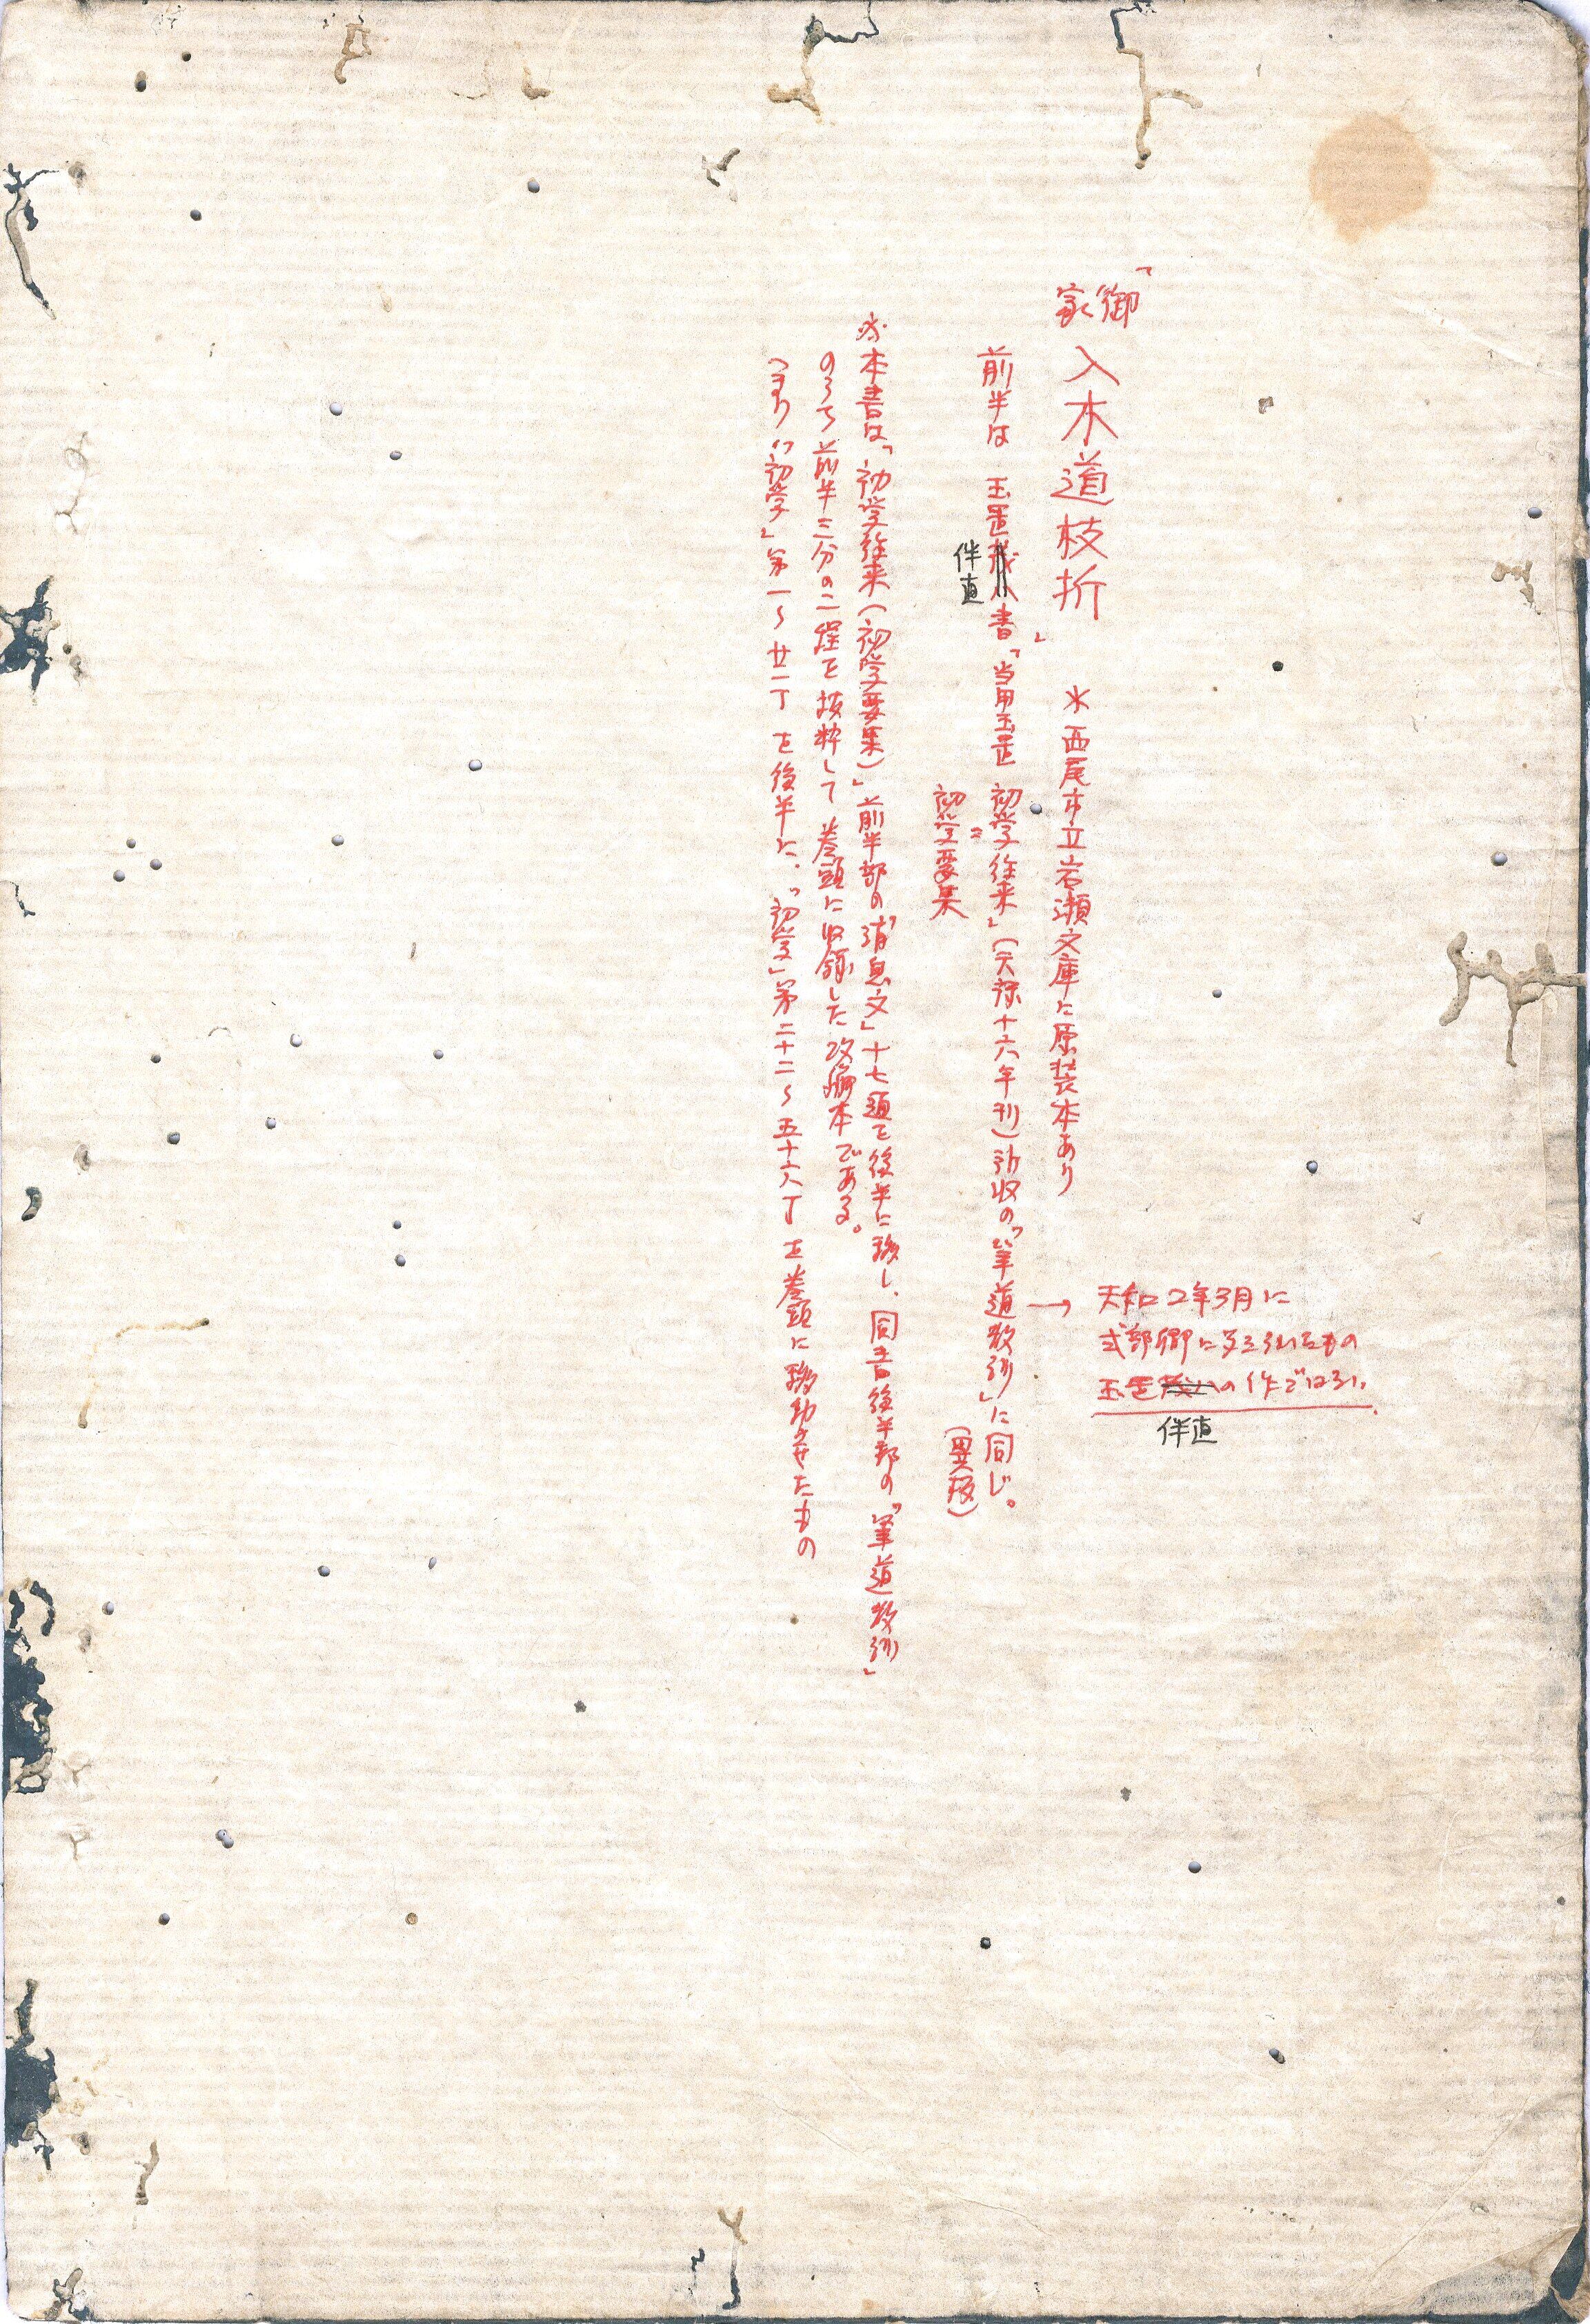 「御家 入木道枝折」 ※西尾市立岩瀬文庫に原装本あり
前半は 玉置 書「当用玉置 初学往来」(元禄十六年刊)所収の「筆道教訓」に同じ。
伴直
=
初学要集
(異板)
→ 天和2年3月に
式部卿に与えられたもの
玉置 の作ではない。
伴直
※本書は「初学往来(初学要集)」前半部の「消息文」十七通を後半に移し、同書後半部の「筆道教訓」
のうち前半三分の二程を抜粋して巻頭に収録した改編本である。
つまり「初学」第一〜廿一丁を後半に、「初学」第二十二〜五十六丁を巻頭に移動させたもの